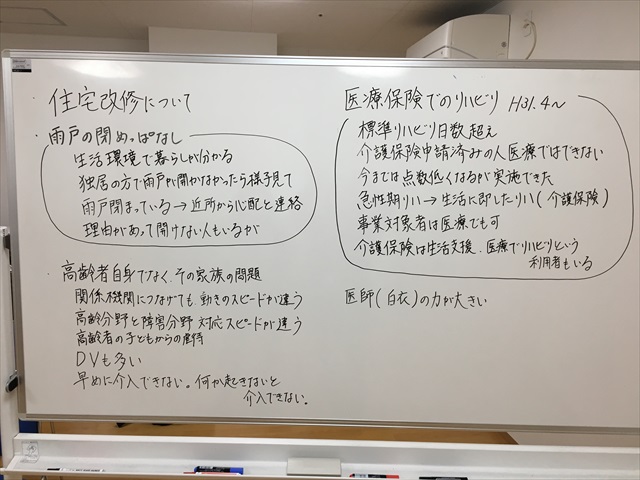 ・住宅改修について
・雨戸の閉めっぱなし
生活環境で暮らしが分かる
独居の方で雨戸が開かなかったら様子見て
雨戸閉まっている→近所から心配と連絡
理由があって開けない人もいるが
・高齢者自身でなく、その家族の問題
関係機関につなげても、動きのスピードが違う
高齢分野と障害分野 対応スピードが違う
高齢者の子どもからの虐待
DVも多い
早めに介入できない。何か起きないと
介入できない。
医療保険でのリハビリ H31.4～
標準リハビリ日数超え
介護保険申請済みの人医療ではできない
今までは点数低くなるが実施できた
急性期リハ→生活に即したリハ(介護保険)
事業対象者は医療でも可
介護保険は生活支援、医療でリハビリという
利用者もいる
医師(白衣)の力が大きい